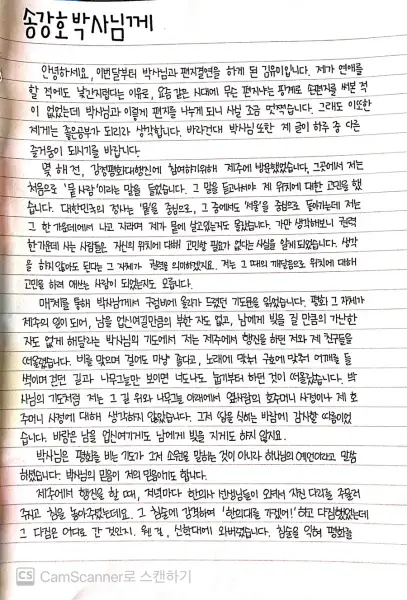 송강호 박사님께
안녕하세요, 이번달부터 박사님과 편지결연을 하게 된 김유미입니다. 제가 연애를
할 적에도 낯간지럽다는 이유로, 요즘 같은 시대에 무슨 편지냐는 핑계로 손편지를 써본 적
이 없었는데 박사님과 이렇게 편지를 나누게 되니 사실 조금 멋쩍습니다. 그래도 이 또한
제게는 좋은공부가 되리라 생각합니다. 바라건대 박사님 또한 제 글이 하루 중 다른
즐거움이 되시기를 바랍니다.
몇 해 전, 강정평화대행진에 참여하기위해 제주에 방문했었습니다. 그곳에서 저는
처음으로 '뭍 사람'이라는 말을 들었습니다. 그 말을 듣고나서야 제 위치에 대한 고민을 했
습니다. 대한민국의 정사는 '뭍'을 중심으로, 그 중에서도 '서울'을 중심으로 돌아가는데 저는
그 한 가운데에서 나고 자라며 제가 뭍에 살고있는지도 몰랐습니다. 가만 생각해보니 권력
한 가운데 사는 사람들은 자신의 위치에 대해 고민할 필요가 없다는 사실을 알게 되었습니다. 생각
을 하지 않아도 된다는 그 자체가 권력을 의미하겠지요. 저는 그 때의 깨달음으로 위치에 대해
고민을 하려 애쓰는 사람이 되었는지도 모릅니다.
매체를 통해 박사님께서 구럼비에 올라가 드렸던 기도문을 읽었습니다. 평화 그 자체가
제주의 영이 되어, 남을 업신여길만큼의 부한 자도 없고, 남에게 빚을 질 만큼의 가난한
자도 없게 해달라는 박사님의 기도에서 저는 제주에서 행진을 하던 저와 제 친구들을
떠올렸습니다. 비를 맞으며 걸어도 마냥 좋다고, 노래에 맞춰 구호에 맞추어 어깨를 들
썩이며 걷던 길과 나무그늘만 보이면 너도나도 눕기부터 하던 것이 떠올랐습니다. 박
사님의 기도처럼 저는 그 길 위와 나무그늘 아래에서 옆사람의 호주머니 사정이나 제 호
주머니 사정에 대해 생각하지 않았습니다. 그저 땀을 식히는 바람에 감사할 따름이었
습니다. 바람은 남을 업신여기게도 남에게 빚을 지게도 하지 않지요.
박사님은 평화를 비는 기도가 그저 소원을 말하는 것이 아니라 하나님의 예언이라고 말씀
하셨습니다. 박사님의 믿음이 저의 믿음이기도 합니다.
제주에서 행진을 할 때, 저녁마다 한의사 선생님들이 오셔서 지친 다리를 주물러
주시고 침을 놓아주셨는데요. 그 침술에 감격하여 '한의대를 가겠어!' 하고 다짐했었는데
그 다짐은 어디로 간 것인지. 웬 걸, 신학대에 와버렸습니다. 침술을 익혀 평화를
CS CamScanner로 스캔하기